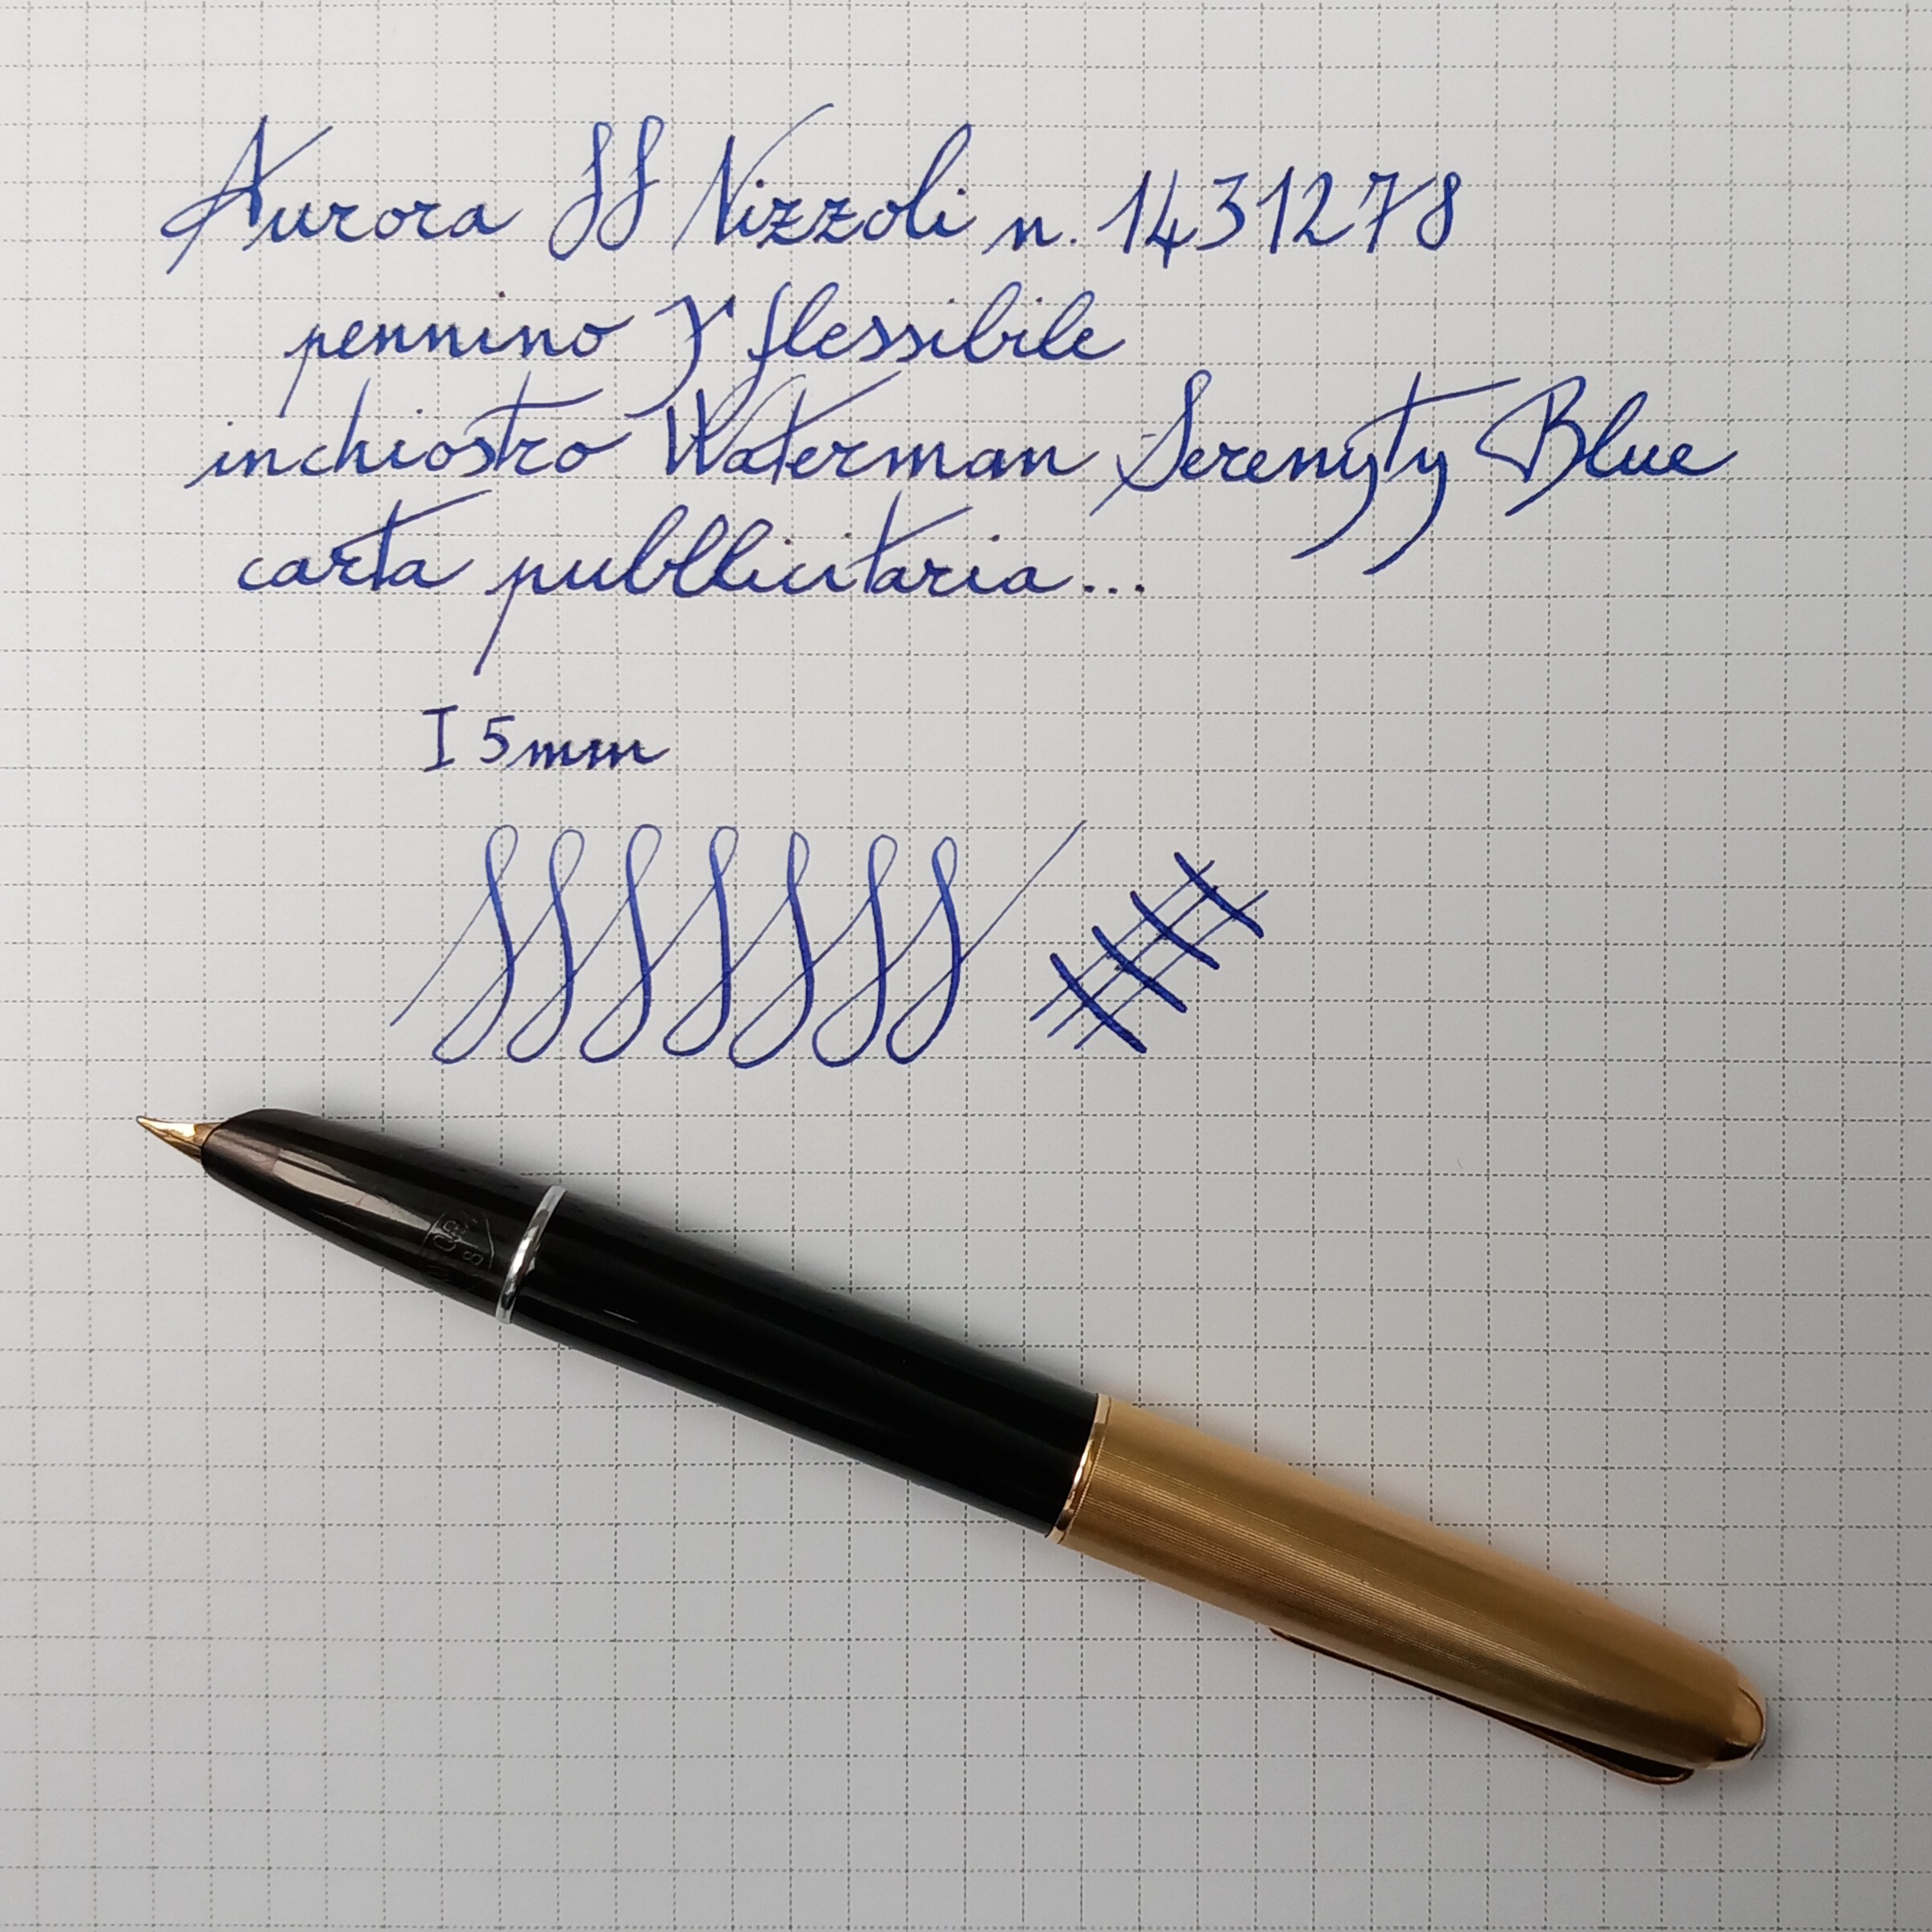 Aurora 88 Nizzoli n. 1431278
pennino flessibile
inchiostro Waterman Serenyty Blue
carta pubblicitaria...
I 5mm